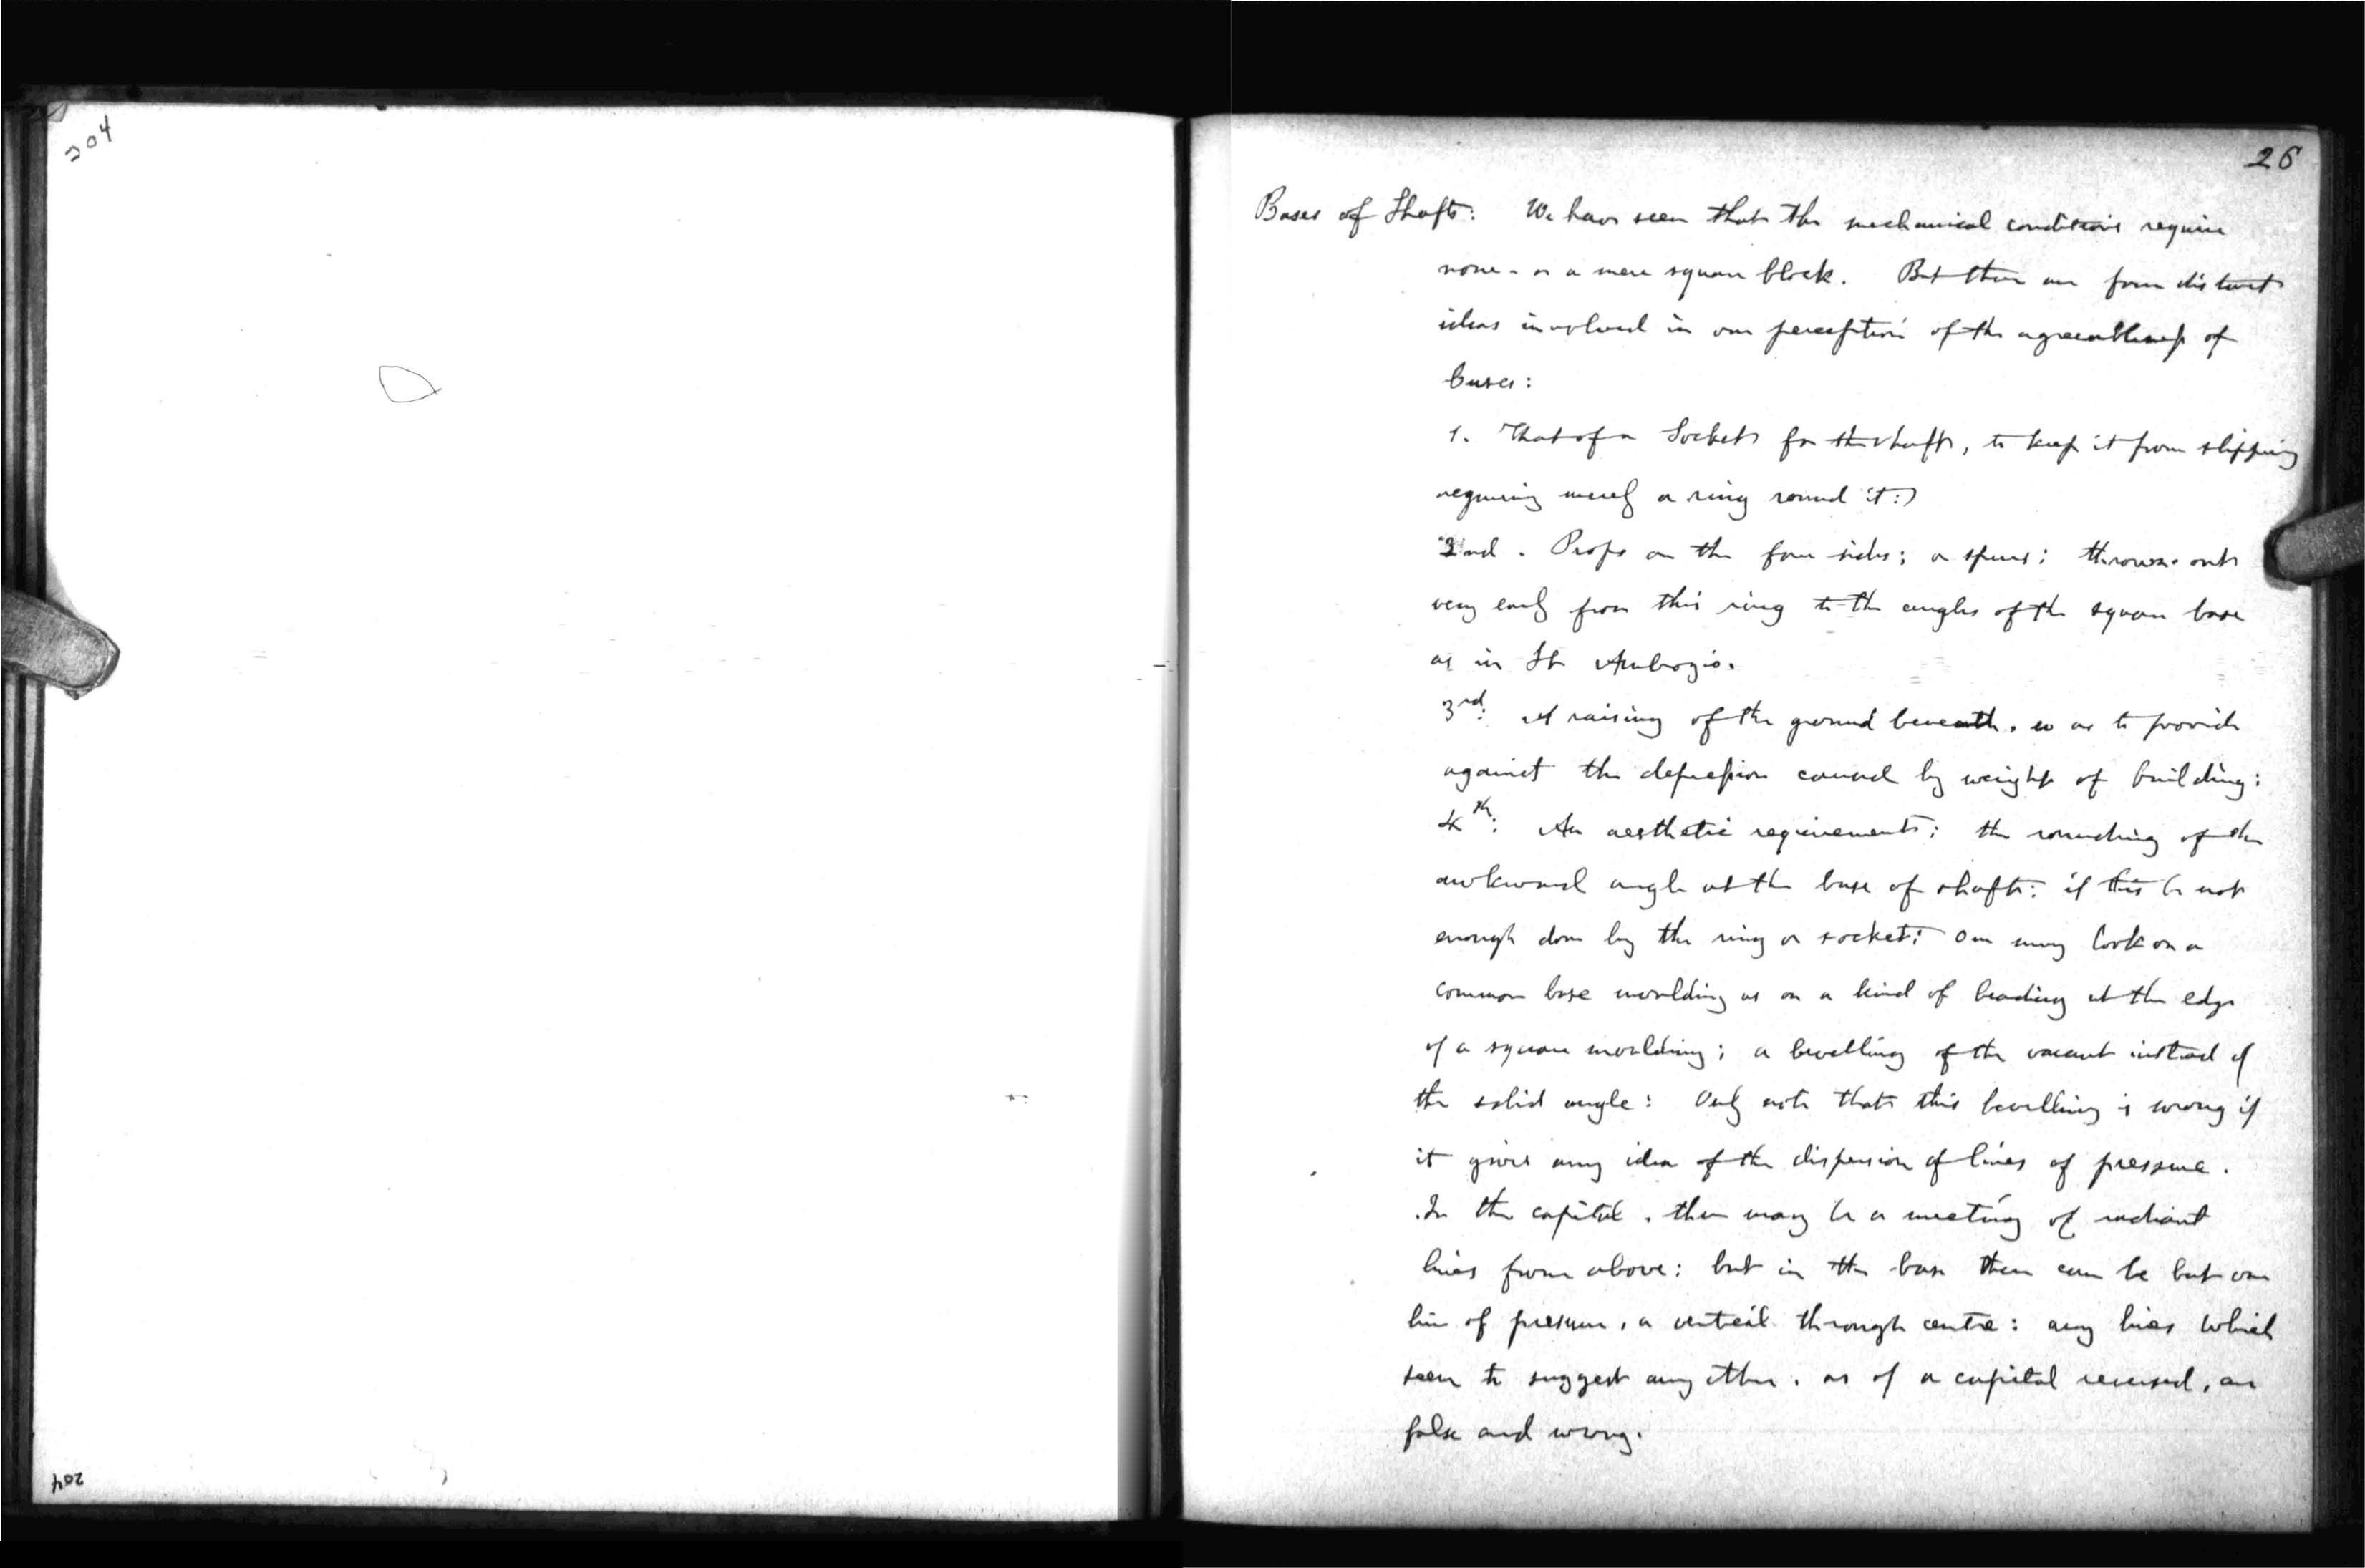 204
204
26
Bases of Shafts: We have seen that the mechanical conditions require
none - or a mere square block. But there are four distinct
ideas involved in our perception of the agreeableness of
bases:
1. That of a Socket for the shaft, to keep it from slipping
requiring merely a ring round it:)
2nd. Props on the four sides; or spurs: thrown out
very early from this ring to the angles of the square base
as in St Ambrogio.
3rd: A raising of the ground beneath, so as to provide
against the depression caused by weight of building:
4th: An aesthetic requirement; the rounding of the
awkward angle at the base of shaft: if this be not
enough done by the ring or socket: One may look on a
common base moulding as on a kind of beading at the edge
of a square moulding; a bevelling of the vacant instead of
the solid angle: Only note that this bevelling is wrong if
it gives any idea of the dispersion of lines of pressure.
In the capital, there may be a meeting of radiant
lines from above: but in the base there can be but one
line of pressure, a vertical through centre: any lines which
seem to suggest any other, as of a capital reversed, are
false and wrong.